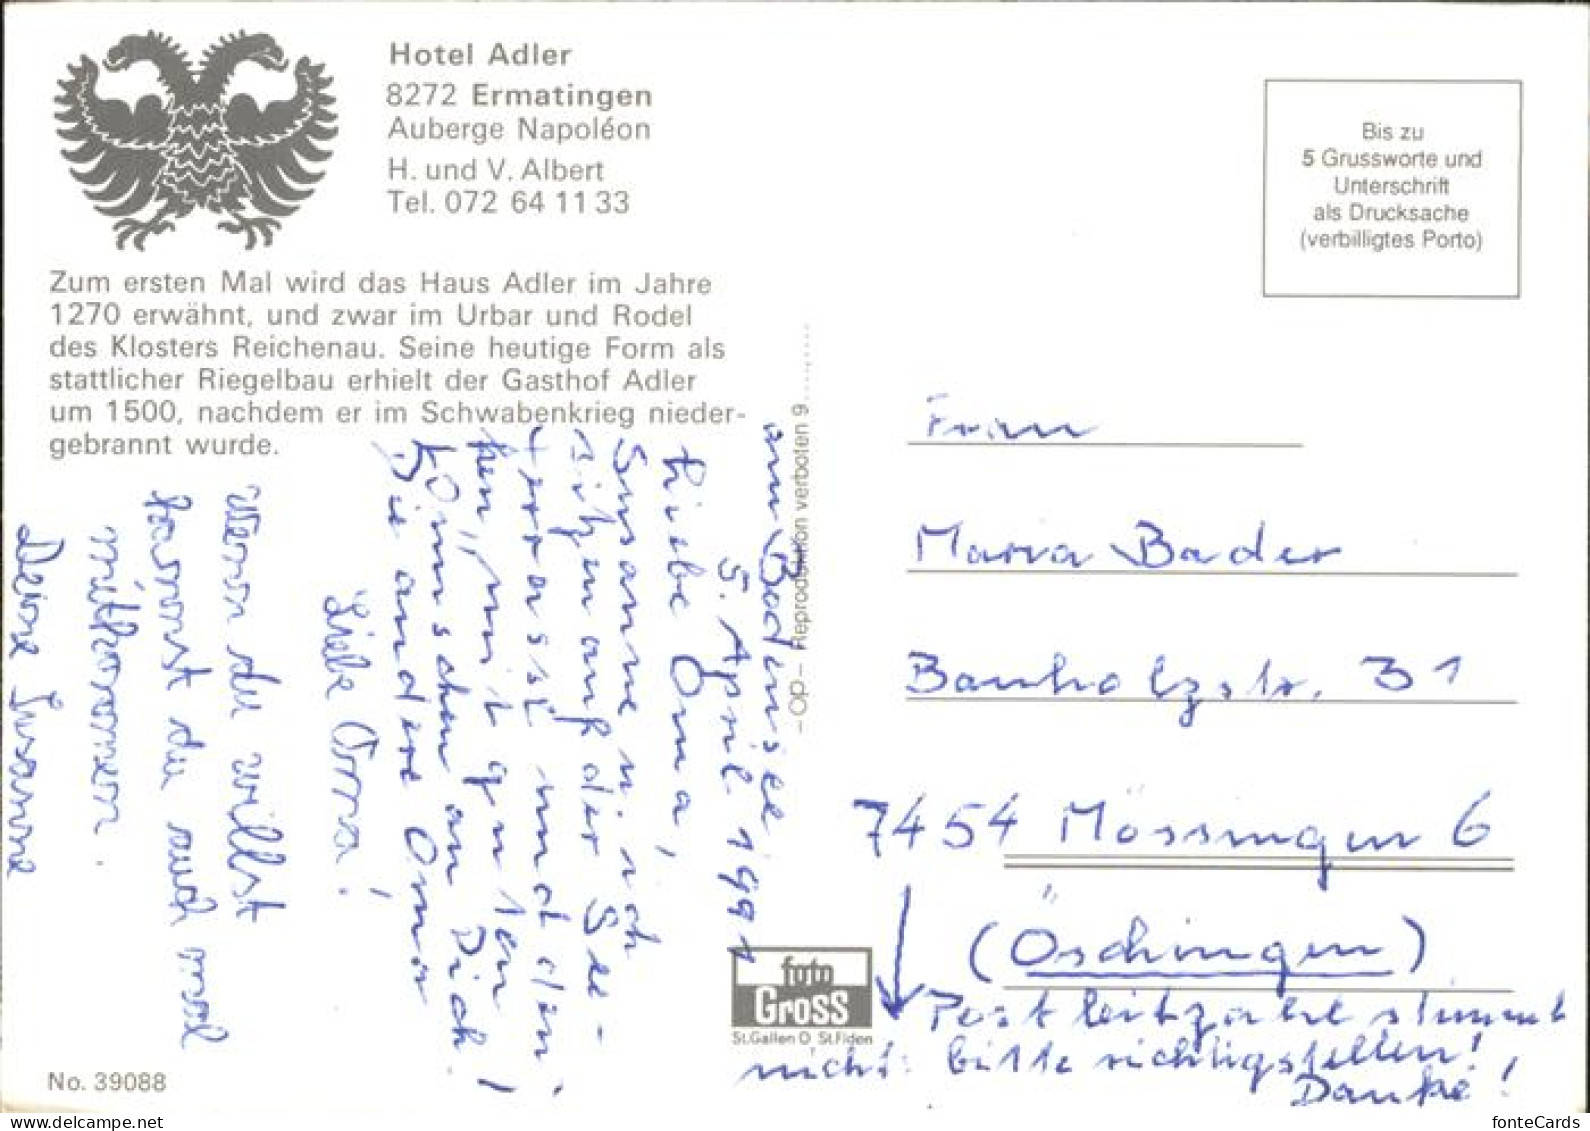 Hotel Adler
8272 Ermatingen
Auberge Napoléon
H. und V. Albert
Tel. 072 64 11 33
Zum ersten Mal wird das Haus Adler im Jahre
1270 erwähnt, und zwar im Urbar und Rodel
des Klosters Reichenau. Seine heutige Form als
stattlicher Riegelbau erhielt der Gasthof Adler
um 1500, nachdem er im Schwabenkrieg nieder-
gebrannt wurde.
Bis zu
5 Grussworte und
Unterschrift
als Drucksache
(verbilligtes Porto)
am Bodensee
5. April 1991
Liebe Oma,
Susanne u. ich
sitzen auf der See-
terrasse und den-
ken, mit guten
Wünschen an Dich!
Die andere Oma
Liebe Oma!
Wenn du willst
kannst du auch mal
mitkommen.
Deine Susanne
– Op – Reproduktion verboten 9
Frau
Maria Bader
Banholzstr. 31
7454 Mössingen 6
(Öschingen)
Postleitzahl stimmt
nicht: bitte richtigstellen!
Danke!
foto
Gross
St.Gallen O St.Fiden
No. 39088
fonteCards